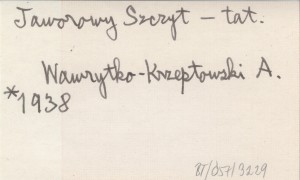 Jaworowy Szczyt – tat.
Wawrytko-Krzeptowski A.
*1938
BT/057/3229